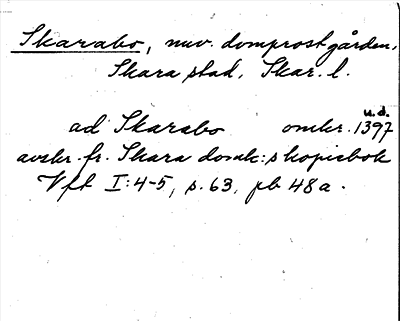 Skarabo, nuv. domprostgården,
Skara stad, Skar. l.
u.d.
ad Skarabo omkr. 1397
avskr. fr. Skara domk:s kopiebok
Vft I:4-5, s. 63, pb 48a.